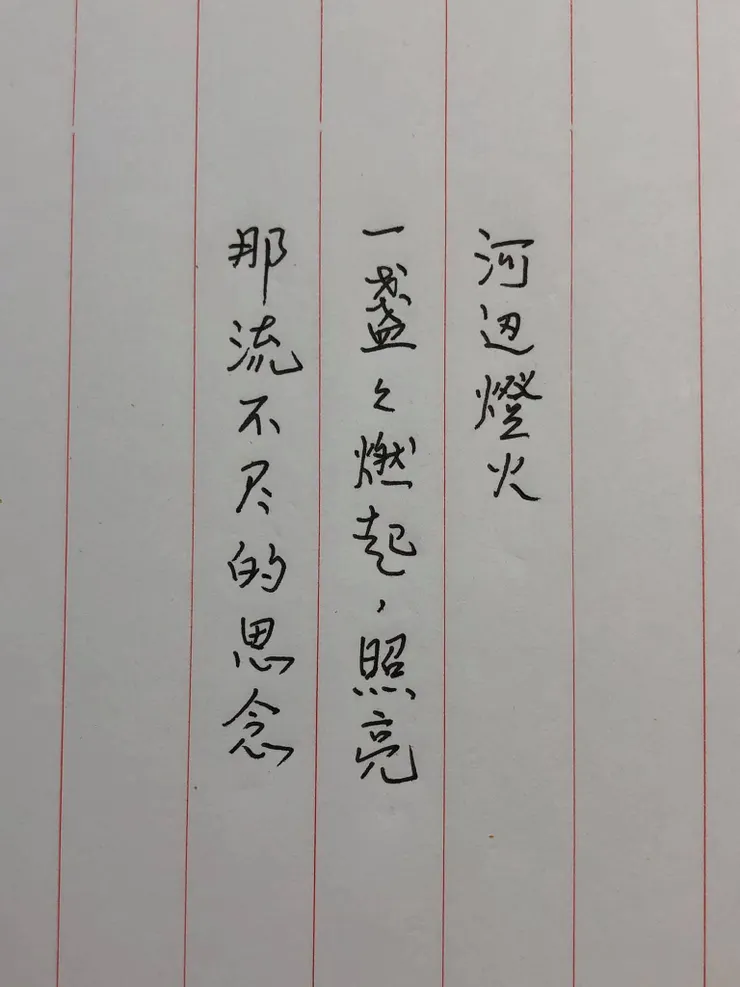 河边燈火
一盏々燃起，照亮
那流不尽的思念